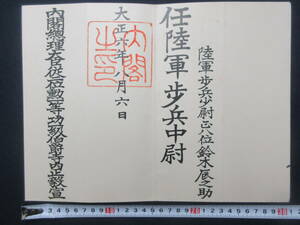 陸軍歩兵少尉正八位鈴木辰之助
任陸軍歩兵中尉
大正六年八月六日
內閣之印
內閣總理大臣從二位勳一等功一級伯爵寺內正毅宣